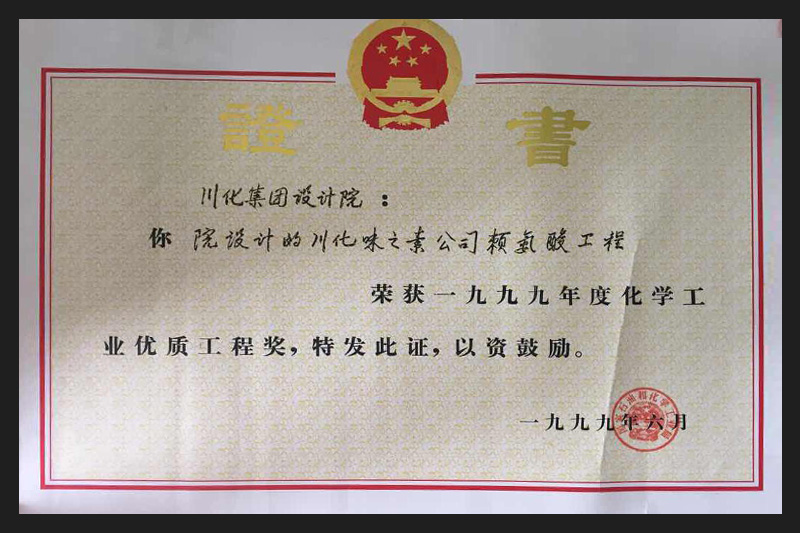 證書
川化集团设计院：
你院设计的川化味之素公司赖氨酸工程
荣获一九九九年度化学工
业优质工程奖，特发此证，以资鼓励。
一九九九年六月
国家石油和化学工业局